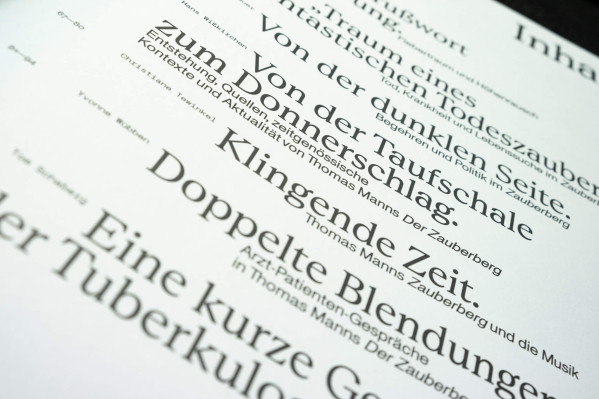 Inha
rußwort
Traum eines
ntastischen Todeszauber
Tod, Krankheit und Lebenssuche im Zauber
Hans Wißkirchen
Von der dunklen Seite.
Begehren und Politik im Zauberberg
67–80
Von der Taufschale
zum Donnerschlag.
Entstehung, Quellen, zeitgenössische
Kontexte und Aktualität von Thomas Manns Der Zauberberg
81–94
Christiane Tewinkel
Klingende Zeit.
Thomas Manns Zauberberg und die Musik
Yvonne Wübben
Doppelte Blendungen
Arzt-Patienten-Gespräche
in Thomas Manns Der Zauberberg
Eine kurze Ge
der Tuberkulos